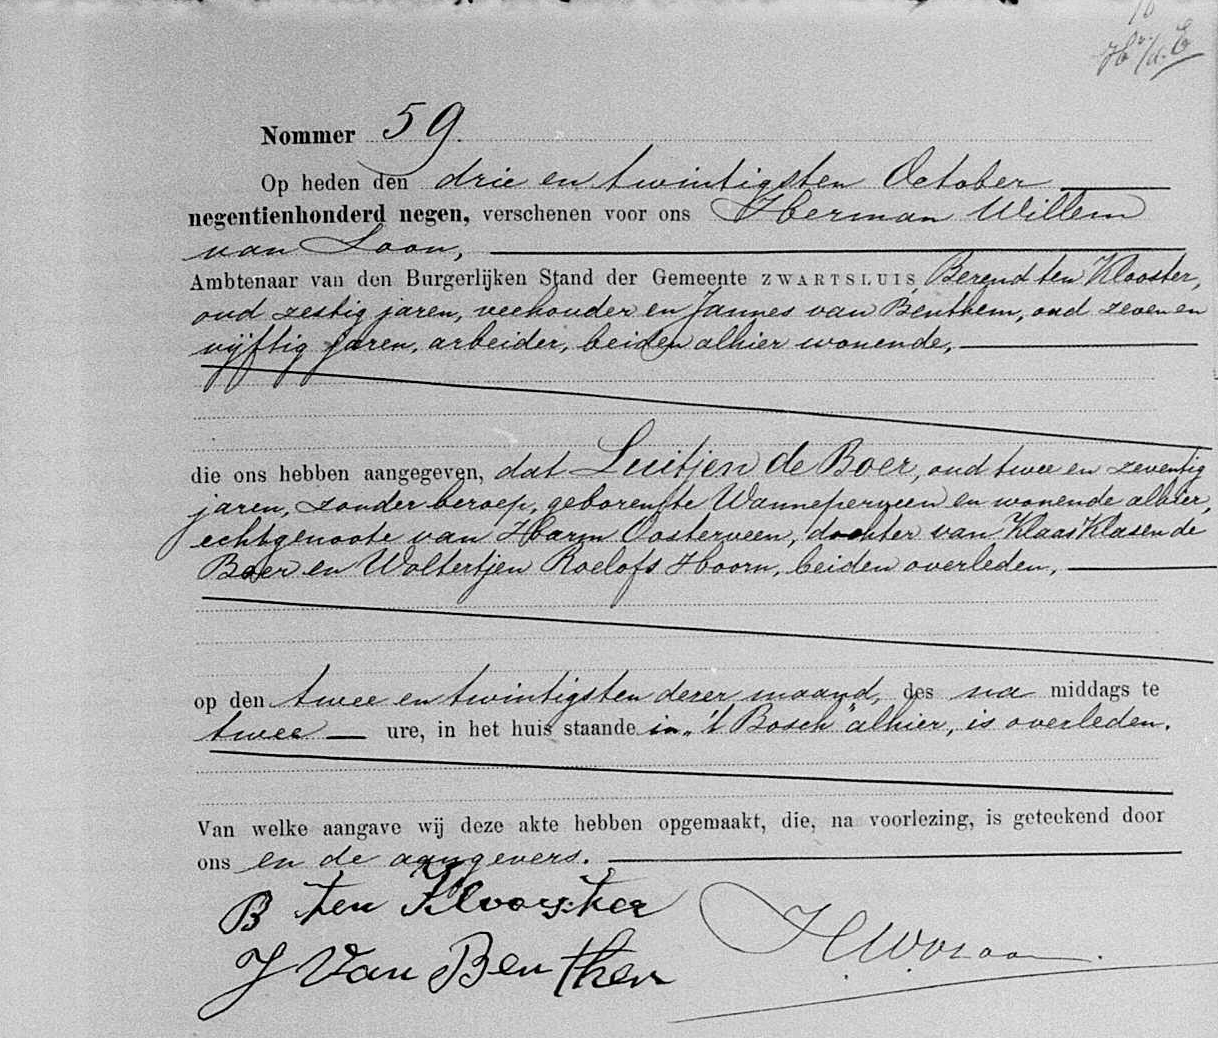 Nommer 59.
Op heden den drie en twintigsten October
negentienhonderd negen, verschenen voor ons Herman Willem
van Loon,
Ambtenaar van den Burgerlijken Stand der Gemeente ZWARTSLUIS Berend ten Klooster,
oud zestig jaren, veehouder en Jannes van Benthem, oud zeven en
vijftig jaren, arbeider, beiden alhier wonende,
die ons hebben aangegeven, dat Luitjen de Boer, oud twee en zeventig
jaren, zonder beroep, geboren te Wanneperveen en wonende alhier,
echtgenoote van Harm Oosterveen, dochter van Klaas Klasen de
Boer en Woltertjen Roelofs Hoorn, beiden overleden,
op den twee en twintigsten dezer maand, des na middags te
twee ure, in het huis staande in „'t Bosch" alhier, is overleden.
Van welke aangave wij deze akte hebben opgemaakt, die, na voorlezing, is geteekend door
ons en de aangevers.
B ten Klooster
J Van Benthem